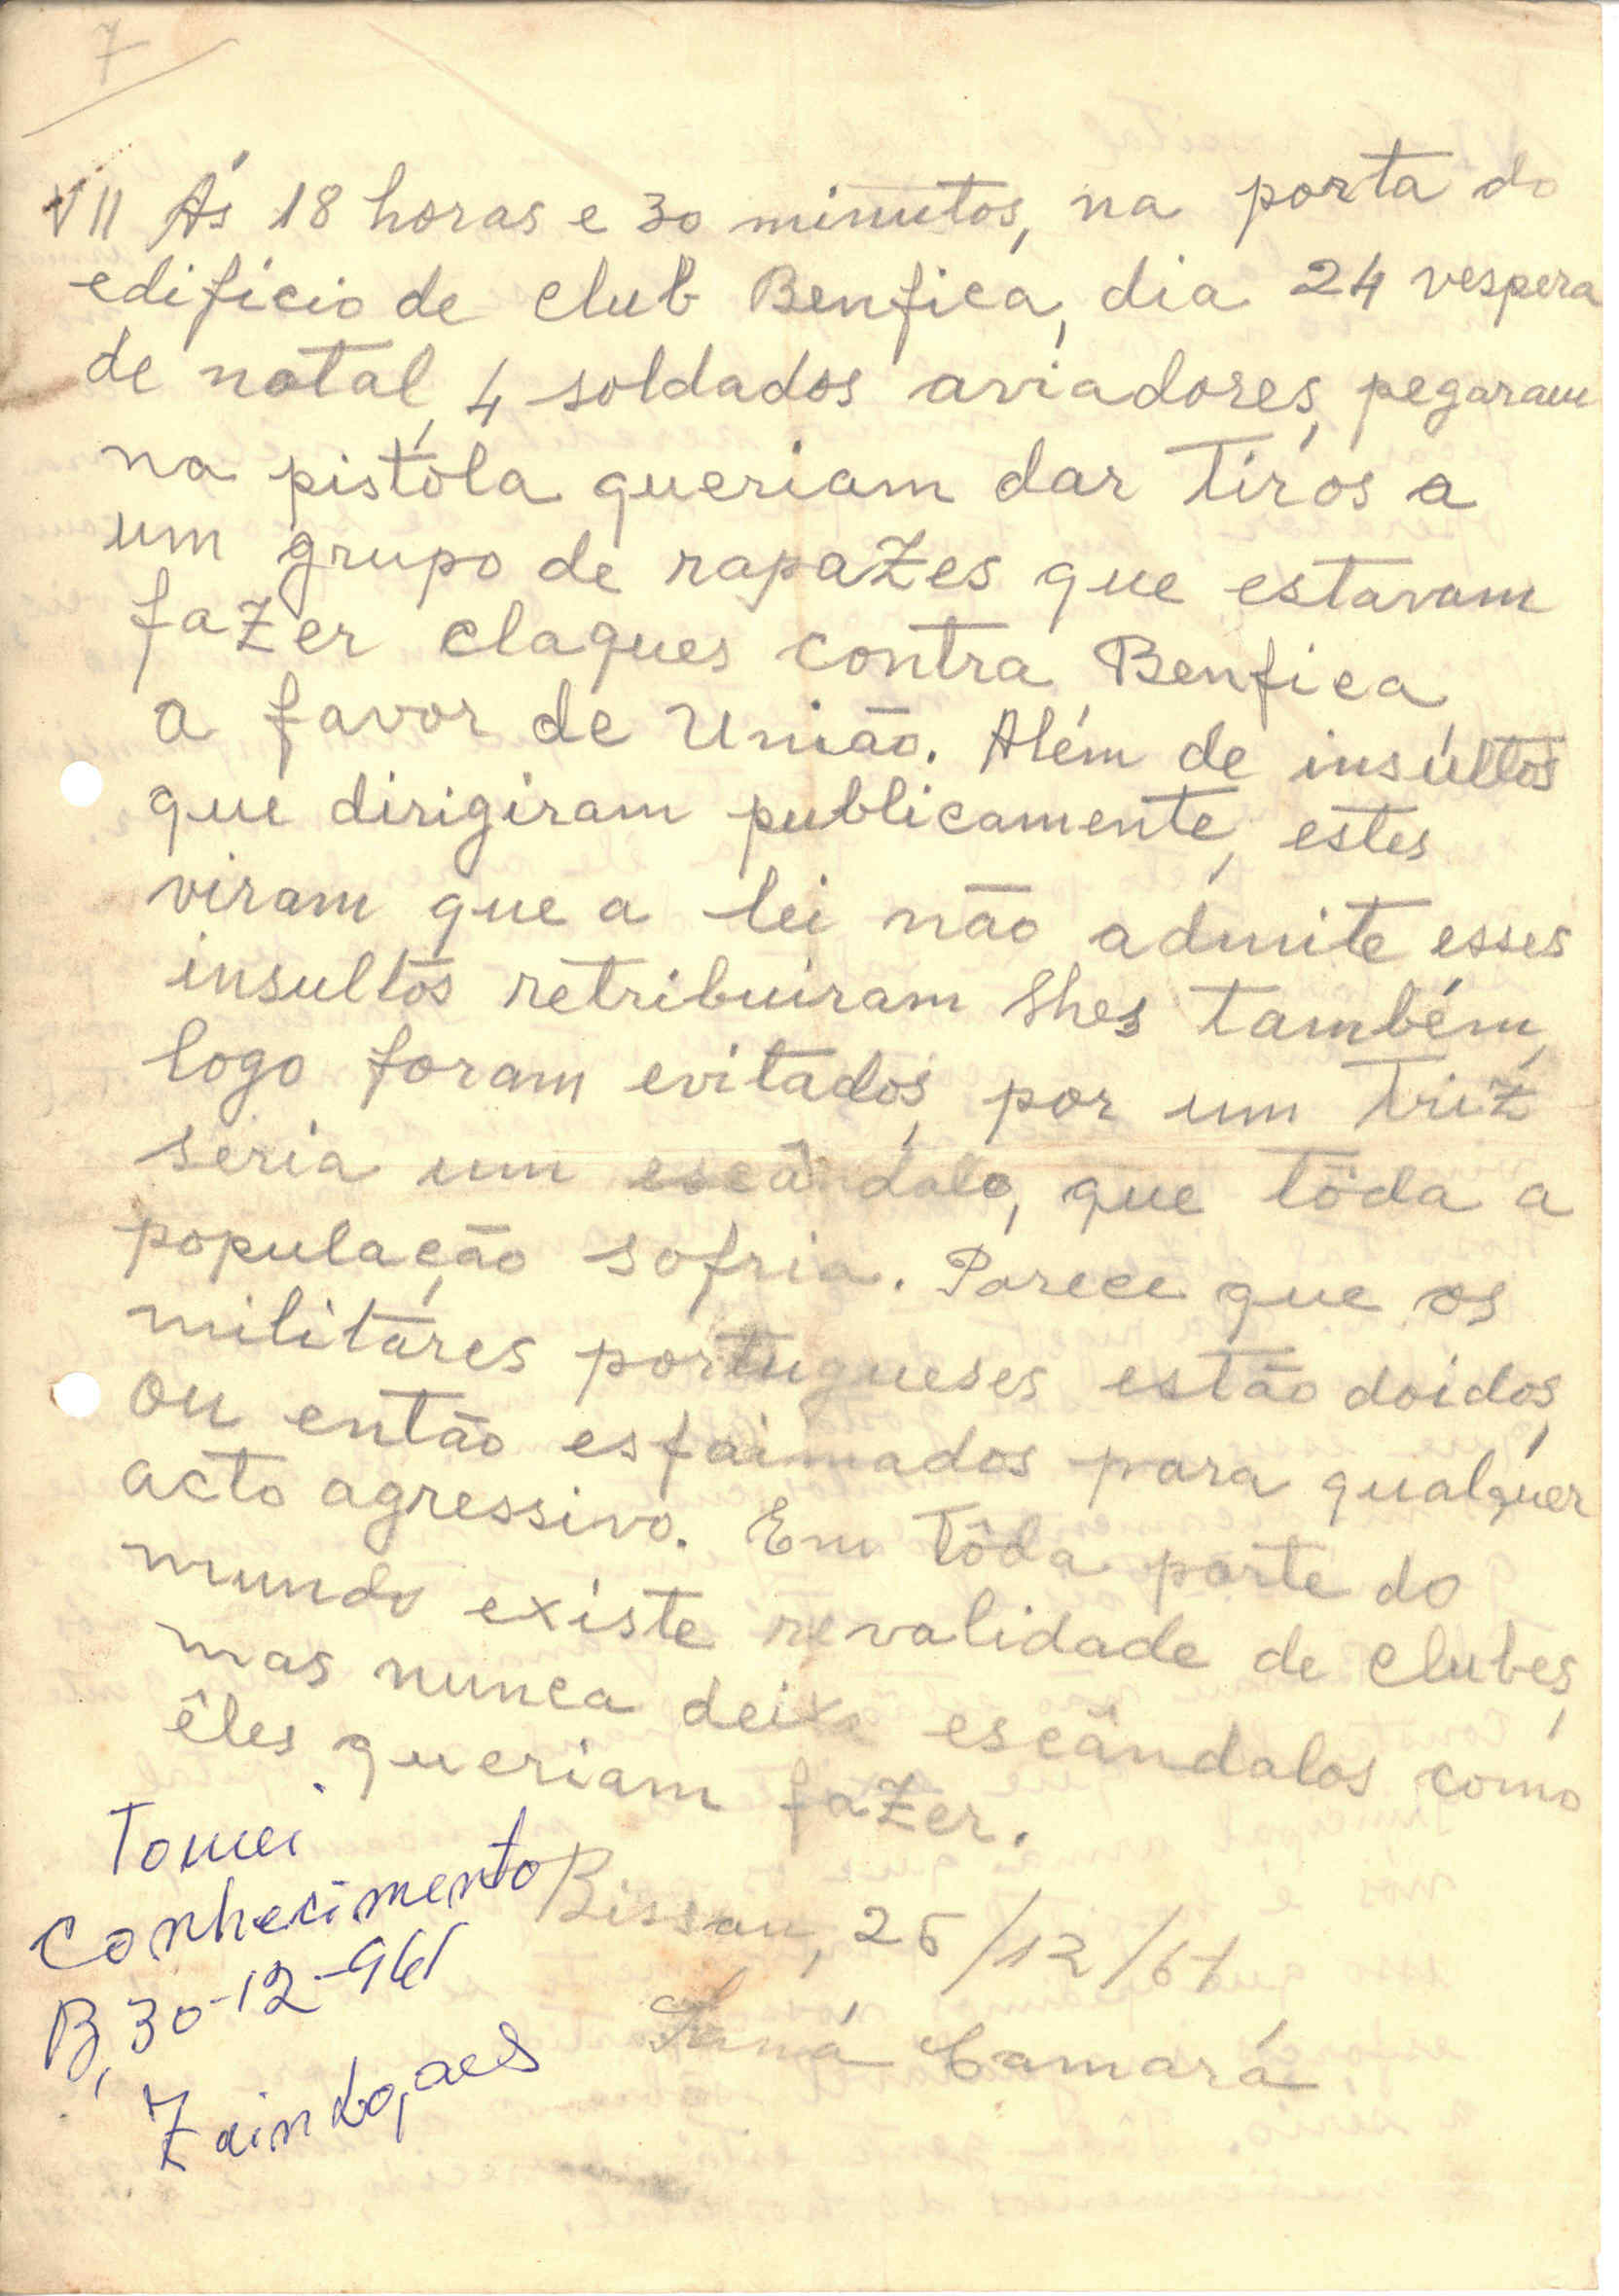 7
VII Ás 18 horas e 30 minutos, na porta do
edifício de club Benfica, dia 24 vespera
de natal, 4 soldados aviadores, pegaram
na pistóla queriam dar tiros a
um grupo de rapazes que estavam
fazer claques contra Benfica,
a favor de União. Além de insúltos
que dirigiram publicamente, estes
viram que a lei não admite esses
insultos retribuiram lhes também,
logo foram evitados, por um triz
seria um escândalo, que tôda a
população sofria. Parece que os
militares portugueses estão doidos,
ou então esfaimados para qualquer
acto agressivo. Em tôda parte do
mundo existe revalidade de clubes,
mas nunca deixa escândalos como
êles queriam fazer.
Bissau, 26/12/61
Camará
Tomei
conhecimento
B, 30-12-961